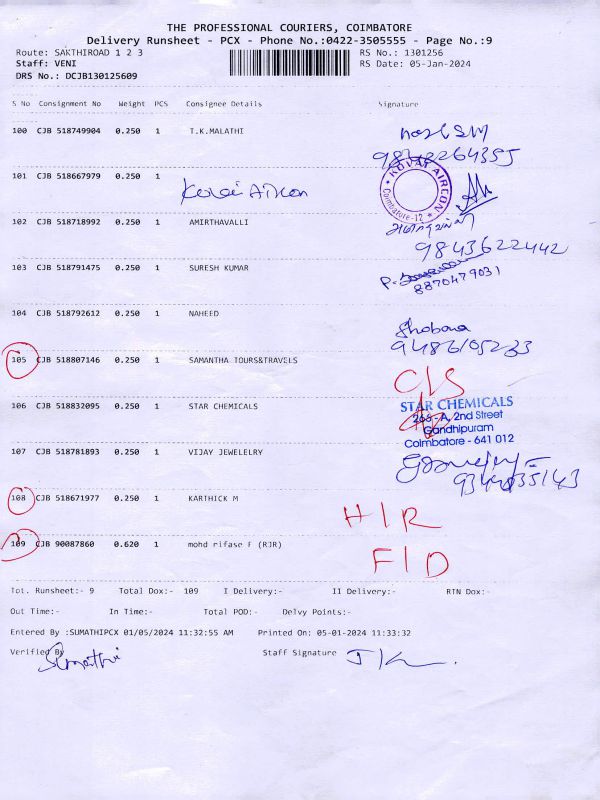 THE PROFESSIONAL COURIERS, COIMBATORE
Delivery Runsheet - PCX - Phone No.:0422-3505555 - Page No.:9
Route: SAKTHIROAD 1 2 3 RS No.: 1301256
Staff: VENI RS Date: 05-Jan-2024
DRS No.: DCJB130125609
S No Consignment No Weight PCS Consignee Details Signature
100 CJB 518749904 0.250 1 T.K.MALATHI
101 CJB 518667979 0.250 1
Kovai Aircon
KOVAI AIRCON
Coimbatore-12
102 CJB 518718992 0.250 1 AMIRTHAVALLI
9843622442
103 CJB 518791475 0.250 1 SURESH KUMAR
8870479031
104 CJB 518792612 0.250 1 NAHEED
Shobana
105 CJB 518807146 0.250 1 SAMANTHA TOURS&TRAVELS
C/S
106 CJB 518832095 0.250 1 STAR CHEMICALS
STAR CHEMICALS
266 - A, 2nd Street
Gandhipuram
Coimbatore - 641 012
107 CJB 518781893 0.250 1 VIJAY JEWELELRY
108 CJB 518671977 0.250 1 KARTHICK M
H/R
109 CJB 90087860 0.620 1 mohd rifase F (RJR)
F/D
Tot. Runsheet:- 9 Total Dox:- 109 I Delivery:- II Delivery:- RTN Dox:-
Out Time:- In Time:- Total POD:- Delvy Points:-
Entered By :SUMATHIPCX 01/05/2024 11:32:55 AM Printed On: 05-01-2024 11:33:32
Verified By Staff Signature
Sumathi